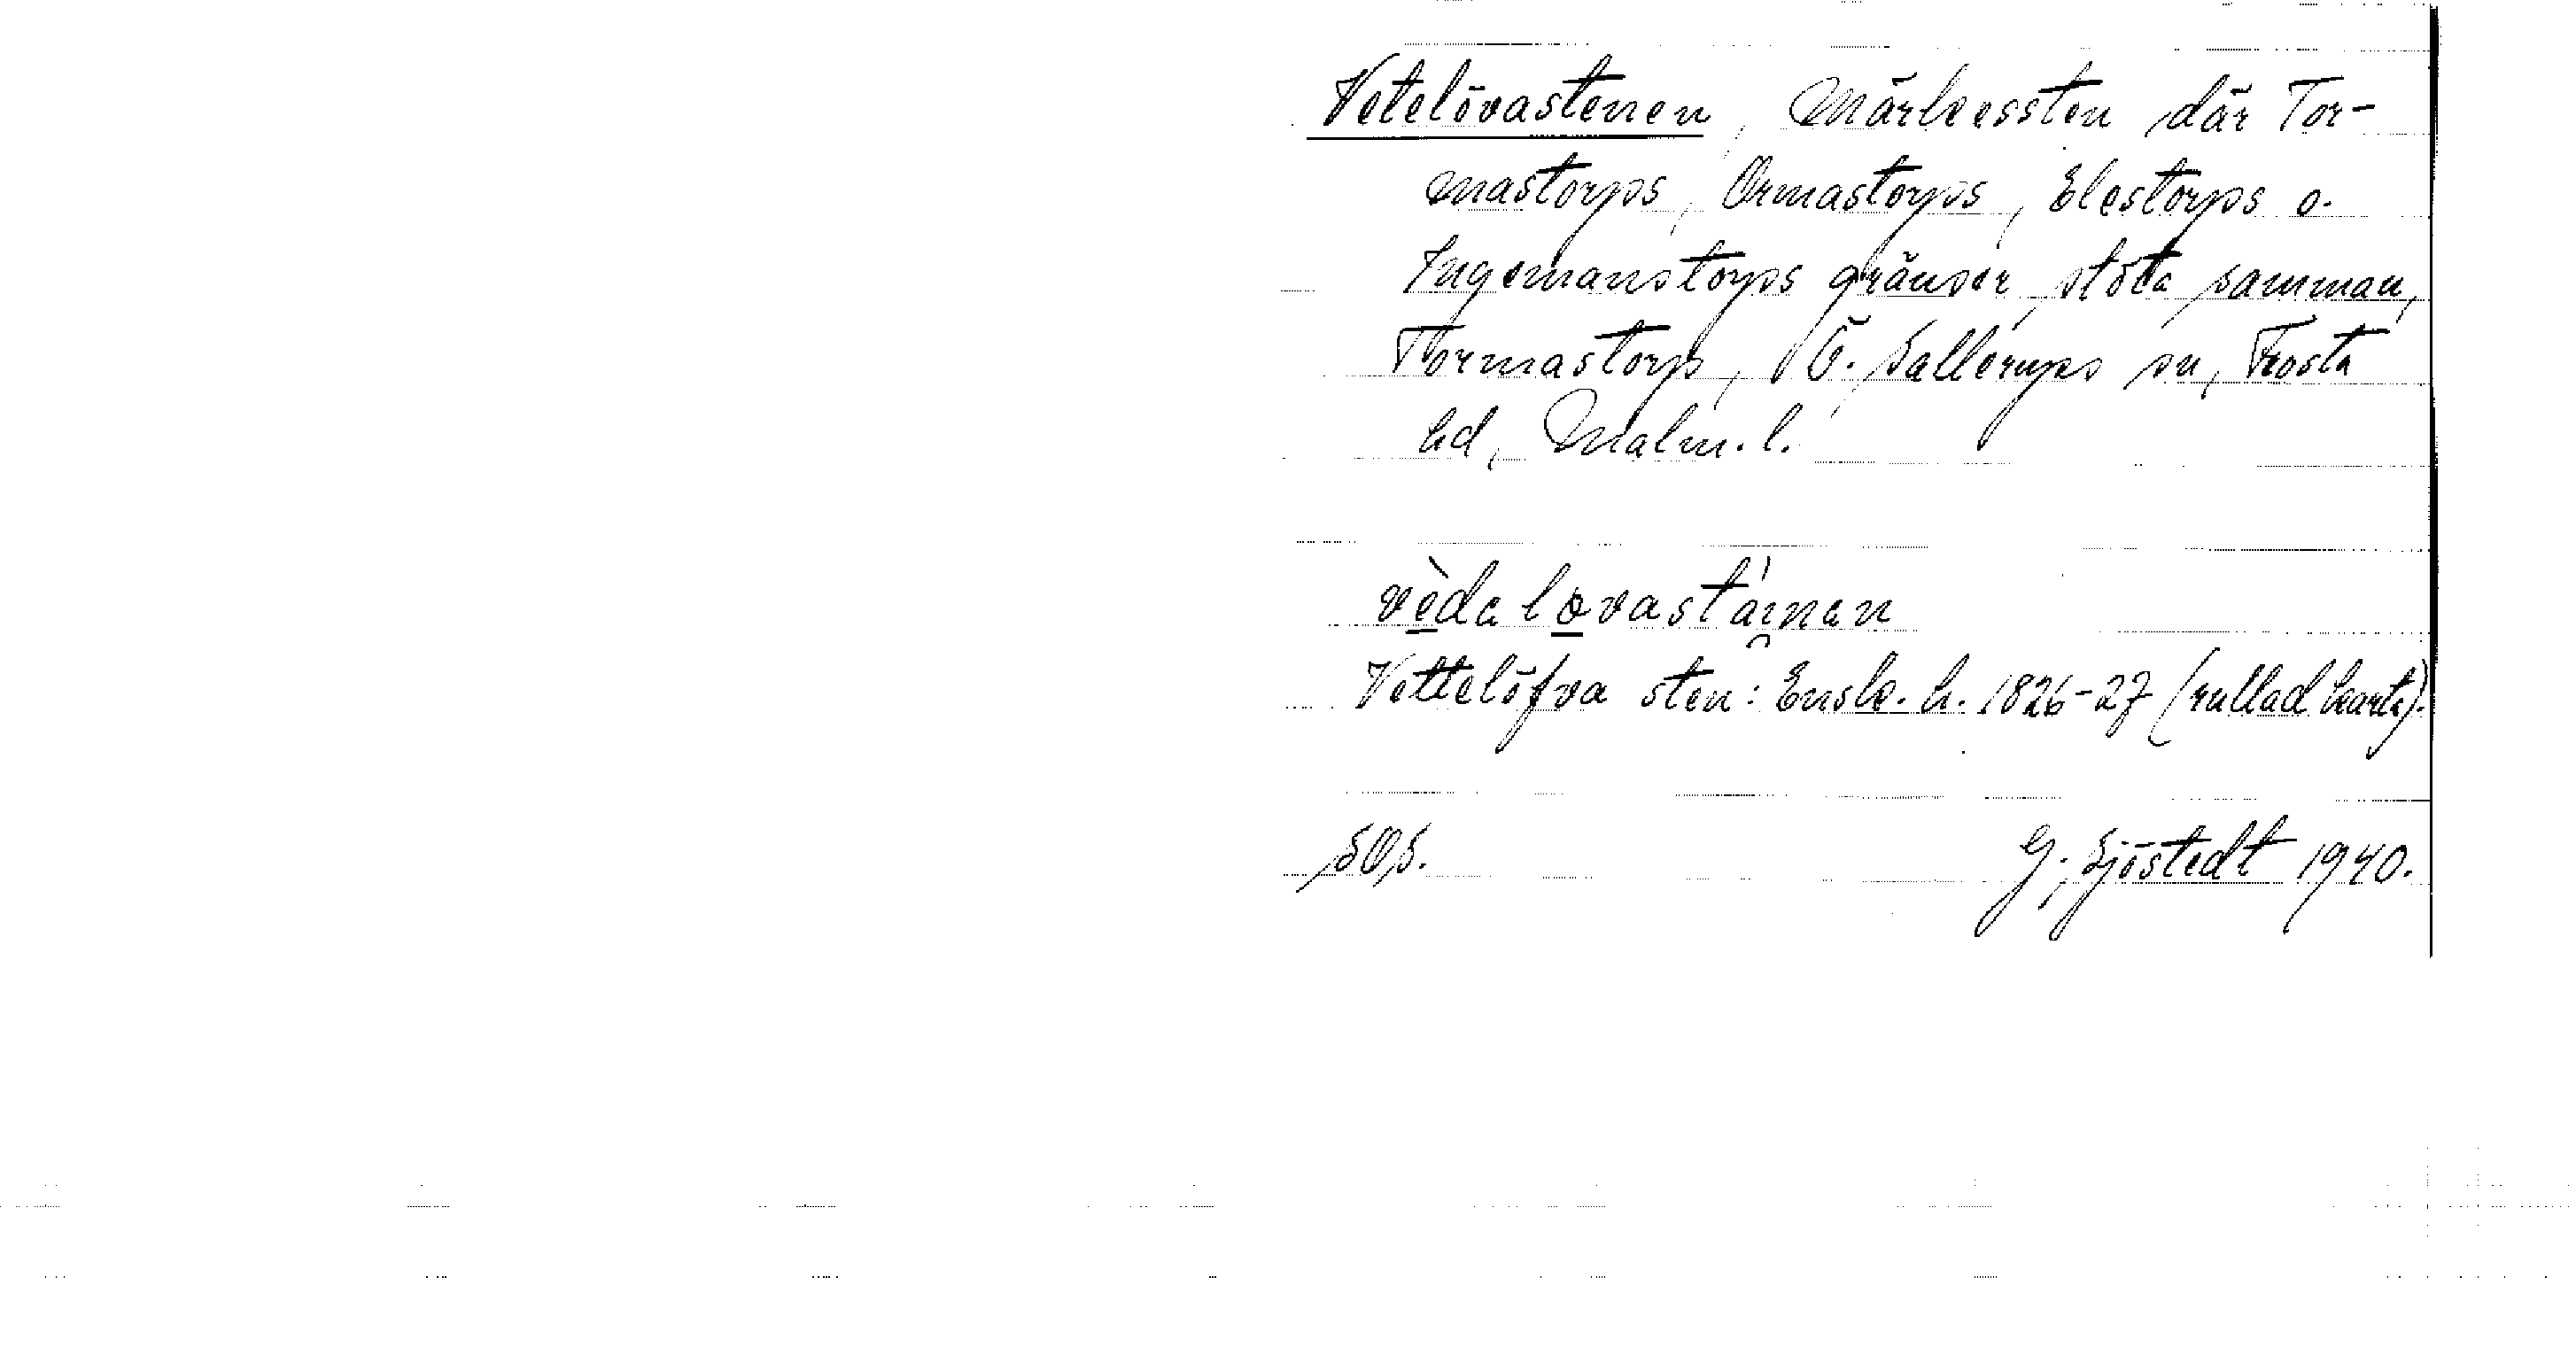 Vetelövastenen, Märkessten där Tor-
mastorps, Ormastorps, Elestorps o.
Ingemanstorps gränser stöta samman,
Tormastorp, Ö. Sallerups sn, Frosta
hd, Malm. l.
vèdalo̱vastáinan
Vettelöfva sten: Ensk. h. 1826-27 (rullad karta).
SOS.
G. Sjöstedt 1940.